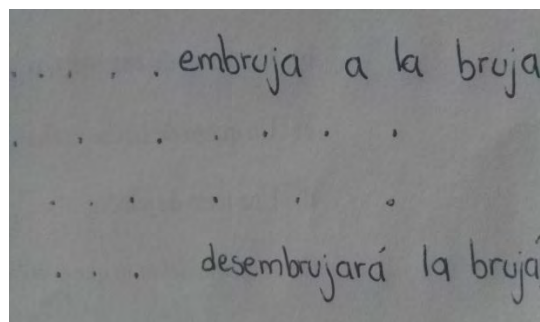 . . . . . embruja a la bruja
. . . . . . .
. . . . . .
. . . desembrujará la brujá